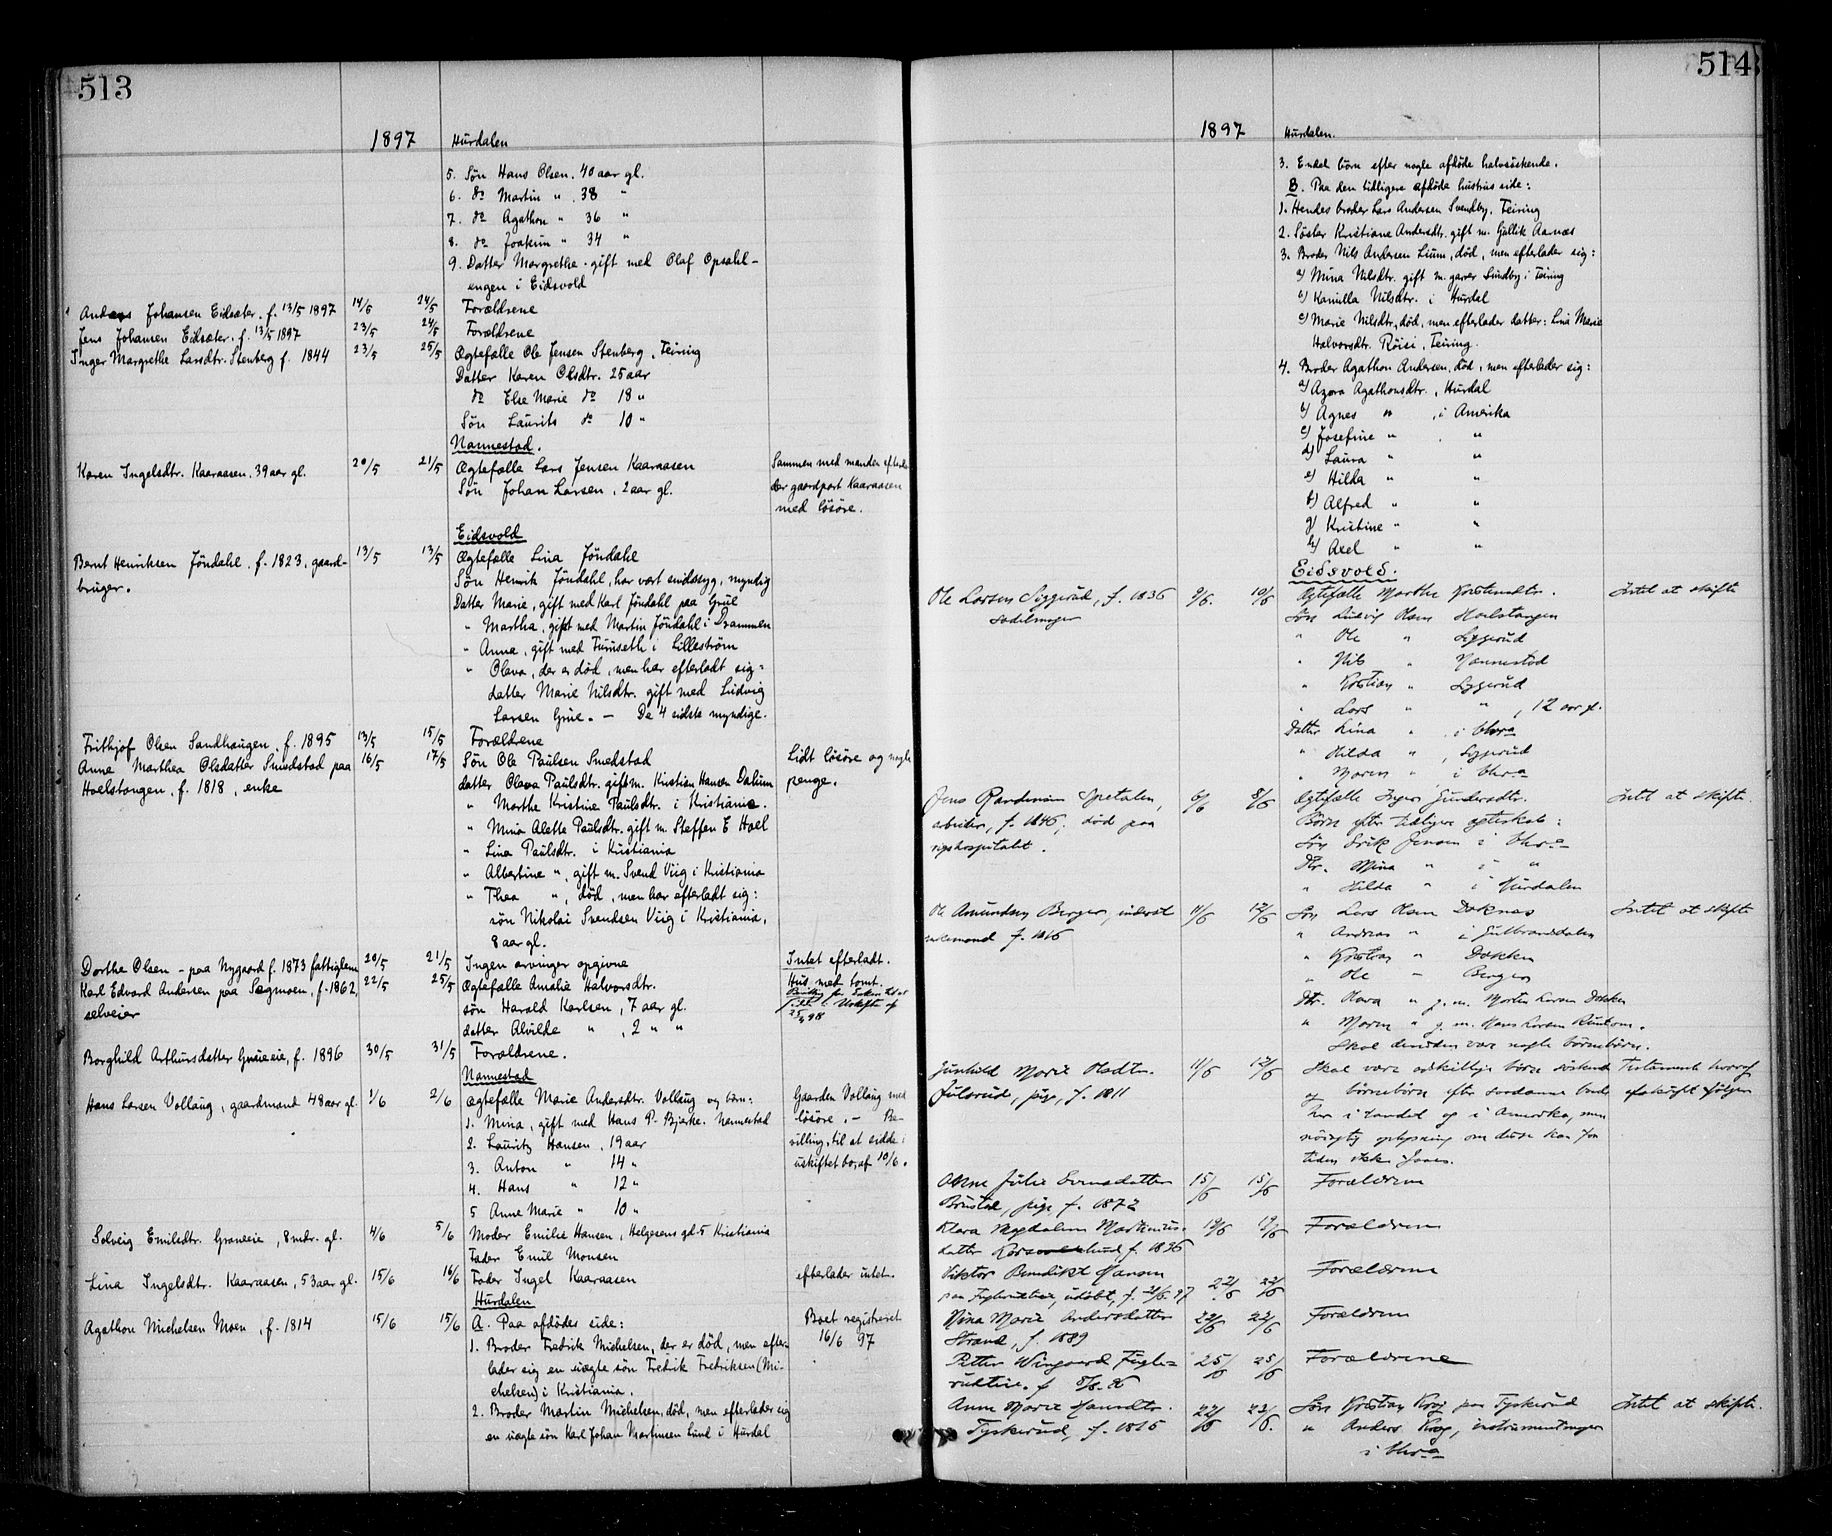 513
1897 Hurdalen
5. Søn Hans Olsen. 40 aar gl.
6. do Martin " . 38 "
7. do Agathon " 36 "
8. do Joakim " 34 "
9. Datter Margrethe. gift med Olaf Opsahl-
engen i Eidsvold
Anders Johansen Eidsæter. f. 13/5 1897 14/5 24/5 Forældrene
Jens Johansen Eidsæter. f. 13/5 1897 23/5 24/5 Forældrene
Inger Margrethe Larsdtr. Stenberg f. 1844 23/5 25/5 Ægtefælle Ole Jensen Stenberg, Feiring
Datter Karen Olsdtr. 25 aar
do Else Marie do 18 "
Søn Laurits do 10 "
Nannestad.
Karen Ingelsdtr. Kaaraasen. 39 aar gl. 20/5 21/5 Ægtefælle Lars Jensen Kaaraasen Sammen med manden efterla-
Søn Johan Larsen, 2 aar gl. der gaardpart Kaaraasen
med løsøre.
Eidsvold
Bernt Henriksen Jøndahl. f. 1823, gaard- 13/5 13/5 Ægtefælle Lina Jøndahl
bruger. Søn Henrik Jøndahl, har vært sindssyg, myndig
Datter Marie, gift med Karl Jøndahl paa Grue
" Martha, gift med Martin Jøndahl i Drammen
" Anna, gift med Furuseth i Lillestrøm
" Oleva, der er død, men har efterladt sig:
datter Marie Nilsdtr. gift med Ludvig
Larsen Grue. — De 4 sidste myndige.
Frithjof Olsen Sandhaugen. f. 1895 13/5 15/5 Forældrene
Anne Marthea Olsdatter Smedstad paa 16/5 17/5 Søn Ole Paulsen Smedstad Lidt løsøre og nogle
Hoelstangen, f. 1818, enke datter Oleva Paulsdtr. gift m. Kristian Hansen Dalum penge.
" Marthe Kristine Paulsdtr. i Kristiania.
" Mina Alette Paulsdtr. gift m. Steffen E Hoel
" Lina Paulsdtr. i Kristiania
" Albertine ", gift m. Svend Viig i Kristiania
" Thea ", død, men har efterladt sig:
søn Nikolai Svendsen Viig i Kristiania,
8 aar gl.
Dorthe Olsen - paa Nygaard f. 1873 fattiglem 20/5 21/5 Ingen arvinger opgivne Intet efterladt.
Karl Edvard Andersen paa Sagmoen, f. 1862, 22/5 25/5 Ægtefælle Amalie Halvorsdtr. Hus med tomt.
selveier søn Harald Karlsen, 7 aar gl.
datter Alvilde " , 2 " "
Borghild Arthursdatter Grueeie, f. 1896 30/5 31/5 Forældrene.
Nannestad
Hans Larsen Vollaug, gaardmand 48 aar gl. 1/6 2/6 Ægtefælle Marie Andersdtr. Vollaug og børn: Gaarden Vollaug med
1. Mina, gift med Hans P. Bjerke. Nannestad løsøre. — Be-
2. Lauritz Hansen, 19 aar villing til at sidde i
3. Anton " 14 " uskiftet bo, af 10/6.
4. Hans " 12 "
5 Anne Marie " 10 "
Solveig Emilsdtr. Graneeie, 8 mdr. gl. 4/6 5/6 Moder Emilie Hansen, Helgesens gd. 5 Kristiania
Fader Emil Monsen
Lina Ingelsdtr. Kaaraasen, 53 aar gl. 15/6 16/6 Fader Ingel Kaaraasen efterlader intet.
Hurdalen
Agathon Michelsen Moen, f. 1814 15/6 15/6 A. Paa afdødes side: Boet registreret
1. Broder Fredrik Michelsen, der er død, men efter- 16/6 97
lader sig en uægte søn Fredrik Fredriksen (Mi-
chelsen) i Kristiania.
2. Broder Martin Michelsen, død, men efterlader sig
en uægte søn Karl Johan Martinsen Lund i Hurdal
514
1897 Hurdalen.
3. Endel børn efter nogle afdøde halvsøskende.
B. Paa den tidligere afdøde hustrus side:
1. Hendes broder Lars Andersen Svendby, Feiring
2. Søster Kristiane Andersdtr. gift m. Gullik Aarnæs
3. Broder Nils Andersen Lium, død, men efterlader sig:
a) Mina Nilsdtr. gift m. garver Lundby i Feiring
b) Kamilla Nilsdtr. i Hurdal
c) Marie Nilsdtr, død, men efterlader datter: Lina Marie
Halvorsdtr. Röisi, Feiring.
4. Broder Agathon Andersen, død, men efterlader sig:
a) Azora Agathonsdtr., Hurdal
b) Agnes " , i Amerika
c) Josefine " . "
d) Laura " "
e) Hilda " "
f) Alfred " "
g) Kristine " "
h) Axel " "
Eidsvold.
Ole Larsen Siggerud, f. 1836 9/6. 10/6 Ægtefælle Marthe Kristensdtr. Intet at skifte
sadelmager Søn Ludvig Olsen Hoelstangen
" Ole " Siggerud
" Nils " Nannestad
" Kristian " Siggerud
" Lars " " , 12 aar gl.
Datter Lina " , i Chr.a
" Hilda " , Siggerud
" Maren " i Chr.a
Jens Spetalen, 6/6 8/6 Ægtefælle Inger Gundersdtr. Intet at skifte.
arbeider, f. 1846; død paa Børn efter tidligere ægteskab:
rigshospitalet. Søn Erik Jensen i Chr.a
Dtr. Mina " i "
" Hilda " i Hurdalen
Ole Amundsen Berger, inderst 11/6 12/6 Søn Lars Olsen Doknes Intet at skifte
enkemand f. 1816 " Andreas " i Gulbrandsdalen
" Kristian " Dokken
" Ole — Berger
Dtr. Olava " g. m. Morten Larsen Dokken
" Maren " g. m. Hans Larsen
Skal desuden være nogle børnebørn.
Gunhild Marie Olsdtr. 11/6 12/6 Skal være adskillige børn søskende Testament hvoraf
Julsrud, pige, f. 1811 og børnebørn efter saadanne baade afskrift følger
her i landet og i Amerika, men
nøiagtig oplysning om disse kan for
tiden ikke faaes.
Anne Julie Svensdatter 15/6 15/6 Forældrene
Brustad, pige f. 1872
Klara Magdalena Martinius- 19/6 19/6 Forældrene
datter
Viktor Benedikt Hansen 22/6 22/6 Forældrene
paa, udøbt, f. 21/6. 97
Nina Marie Andersdatter 22/6 22/6 Forældrene
Strand, f. 1889
Petter Wingaard Fugle- 25/6 25/6 Forældrene
rudeie. f 5/8. 96
Anne Marie Hansdtr. 22/6 23/6. Søn Kristian Krog paa Tyskerud Intet at skifte.
Tyskerud, f. 1815 " Anders Krog, instrumentmager
i Chr.a